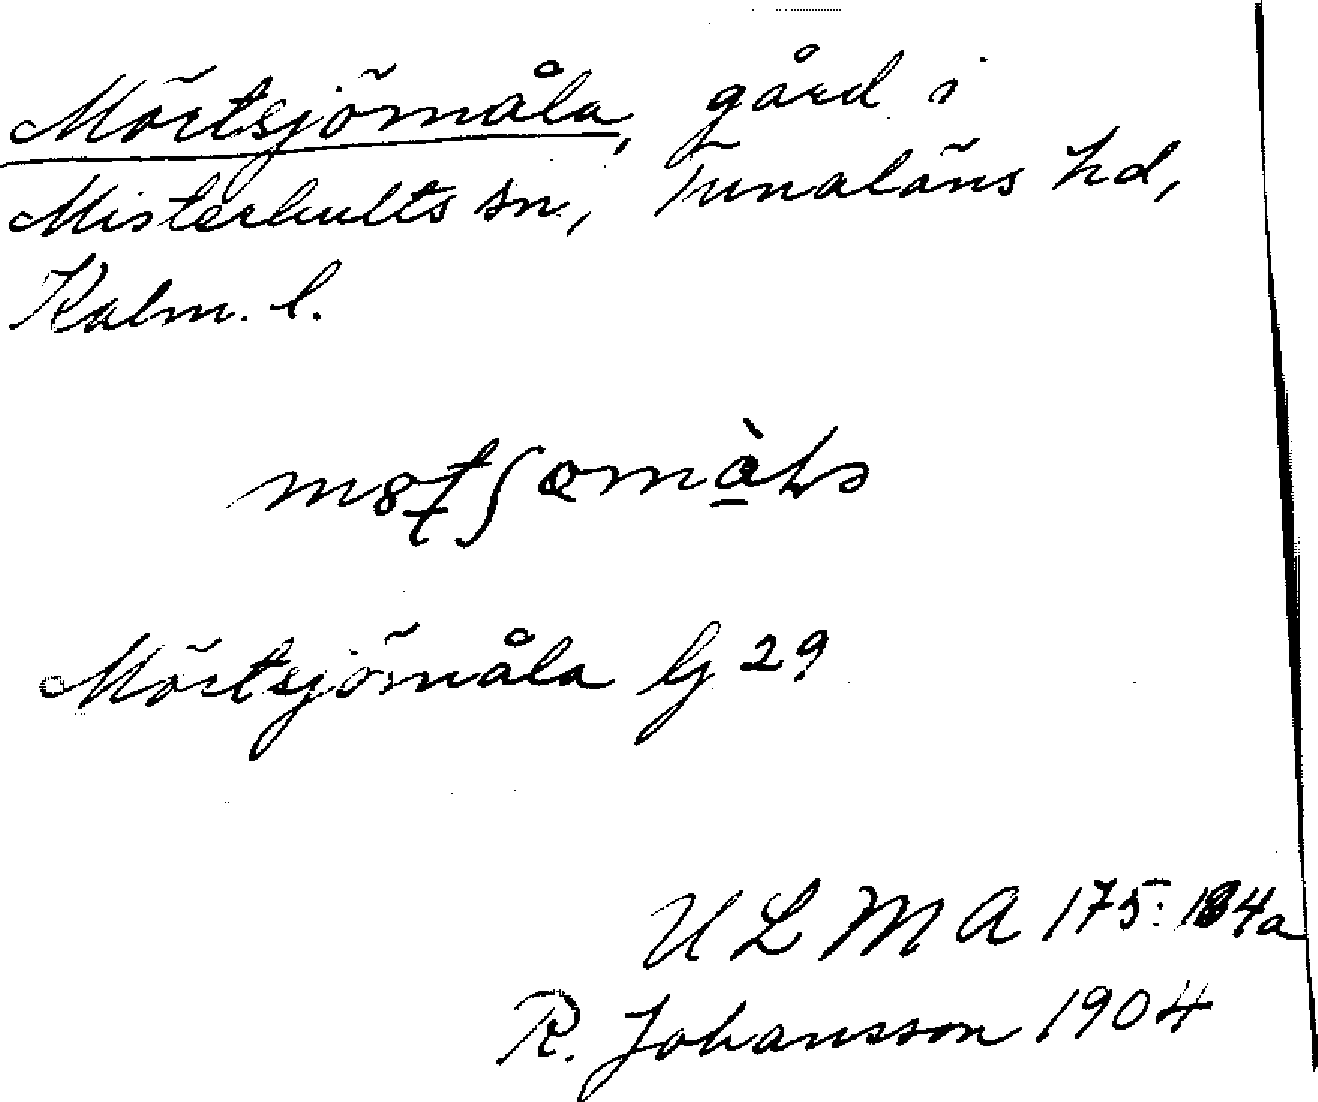 Mörtsjömåla, gård i
Misterhults sn., Tunaläns hd,
Kalm. l.
Mörtsjömåla lj 29
U L M A 175: 184a
R. Johansson 1904